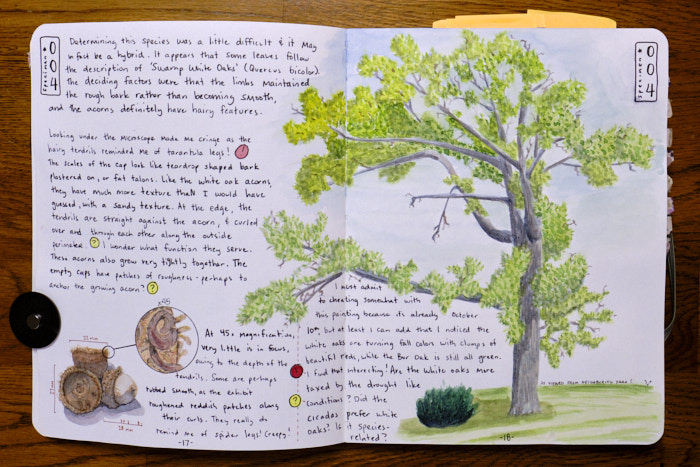 specimen • 004
Determining this species was a little difficult & it may
in fact be a hybrid. It appears that some leaves follow
the description of 'Swamp White Oaks' (Quercus bicolor)
the deciding factors were that the limbs maintained
the rough bark rather than becoming smooth,
and the acorns definitely have hairy features.
Looking under the microscope made me cringe as the
hairy tendrils reminded me of tarantula legs! !
The scales of the cap look like teardrop shaped bark
plastered on, or fat talons. Like the white oak acorns,
they have much more texture than I would have
guessed, with a sandy texture. At the edge, the
tendrils are straight against the acorn, & curled
over and through each other along the outside
perimeter. ? I wonder what function they serve.
These acorns also grow very tightly together. The
empty caps have patches of roughness - perhaps to
anchor the growing acorn? ?
x45
22 mm
28 mm
At 45x magnification,
very little is in focus,
owing to the depth of the
tendrils. Some are perhaps
rubbed smooth, as the exhibit
roughened reddish patches along
their curls. They really do
remind me of spider legs! Creepy!
-17-
specimen • 004
I must admit
to cheating somewhat with
this painting because it's already October
10th, but at least I can add that I noticed the
white oaks are turning fall colors with clumps of
beautiful reds, while the Bur Oak is still all green.
! I find that interesting! Are the white oaks more
taxed by the drought like
? conditions? Did the
cicadas prefer white
oaks? Is it species-
related?
AS VIEWED FROM NEIGHBORING PARK!
-18-